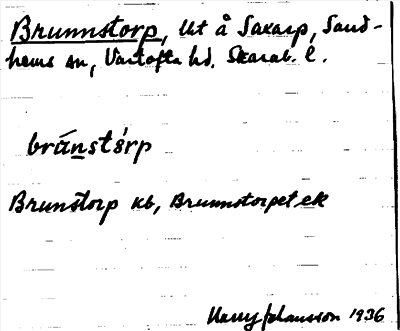 Brunnstorp, Ut å Saxarp, Sand-
hems sn, Vartofta hd. Skarab. l.
brúnstórp
Brunstorp kb, Brunnstorpet ek
Harry Johansson 1936